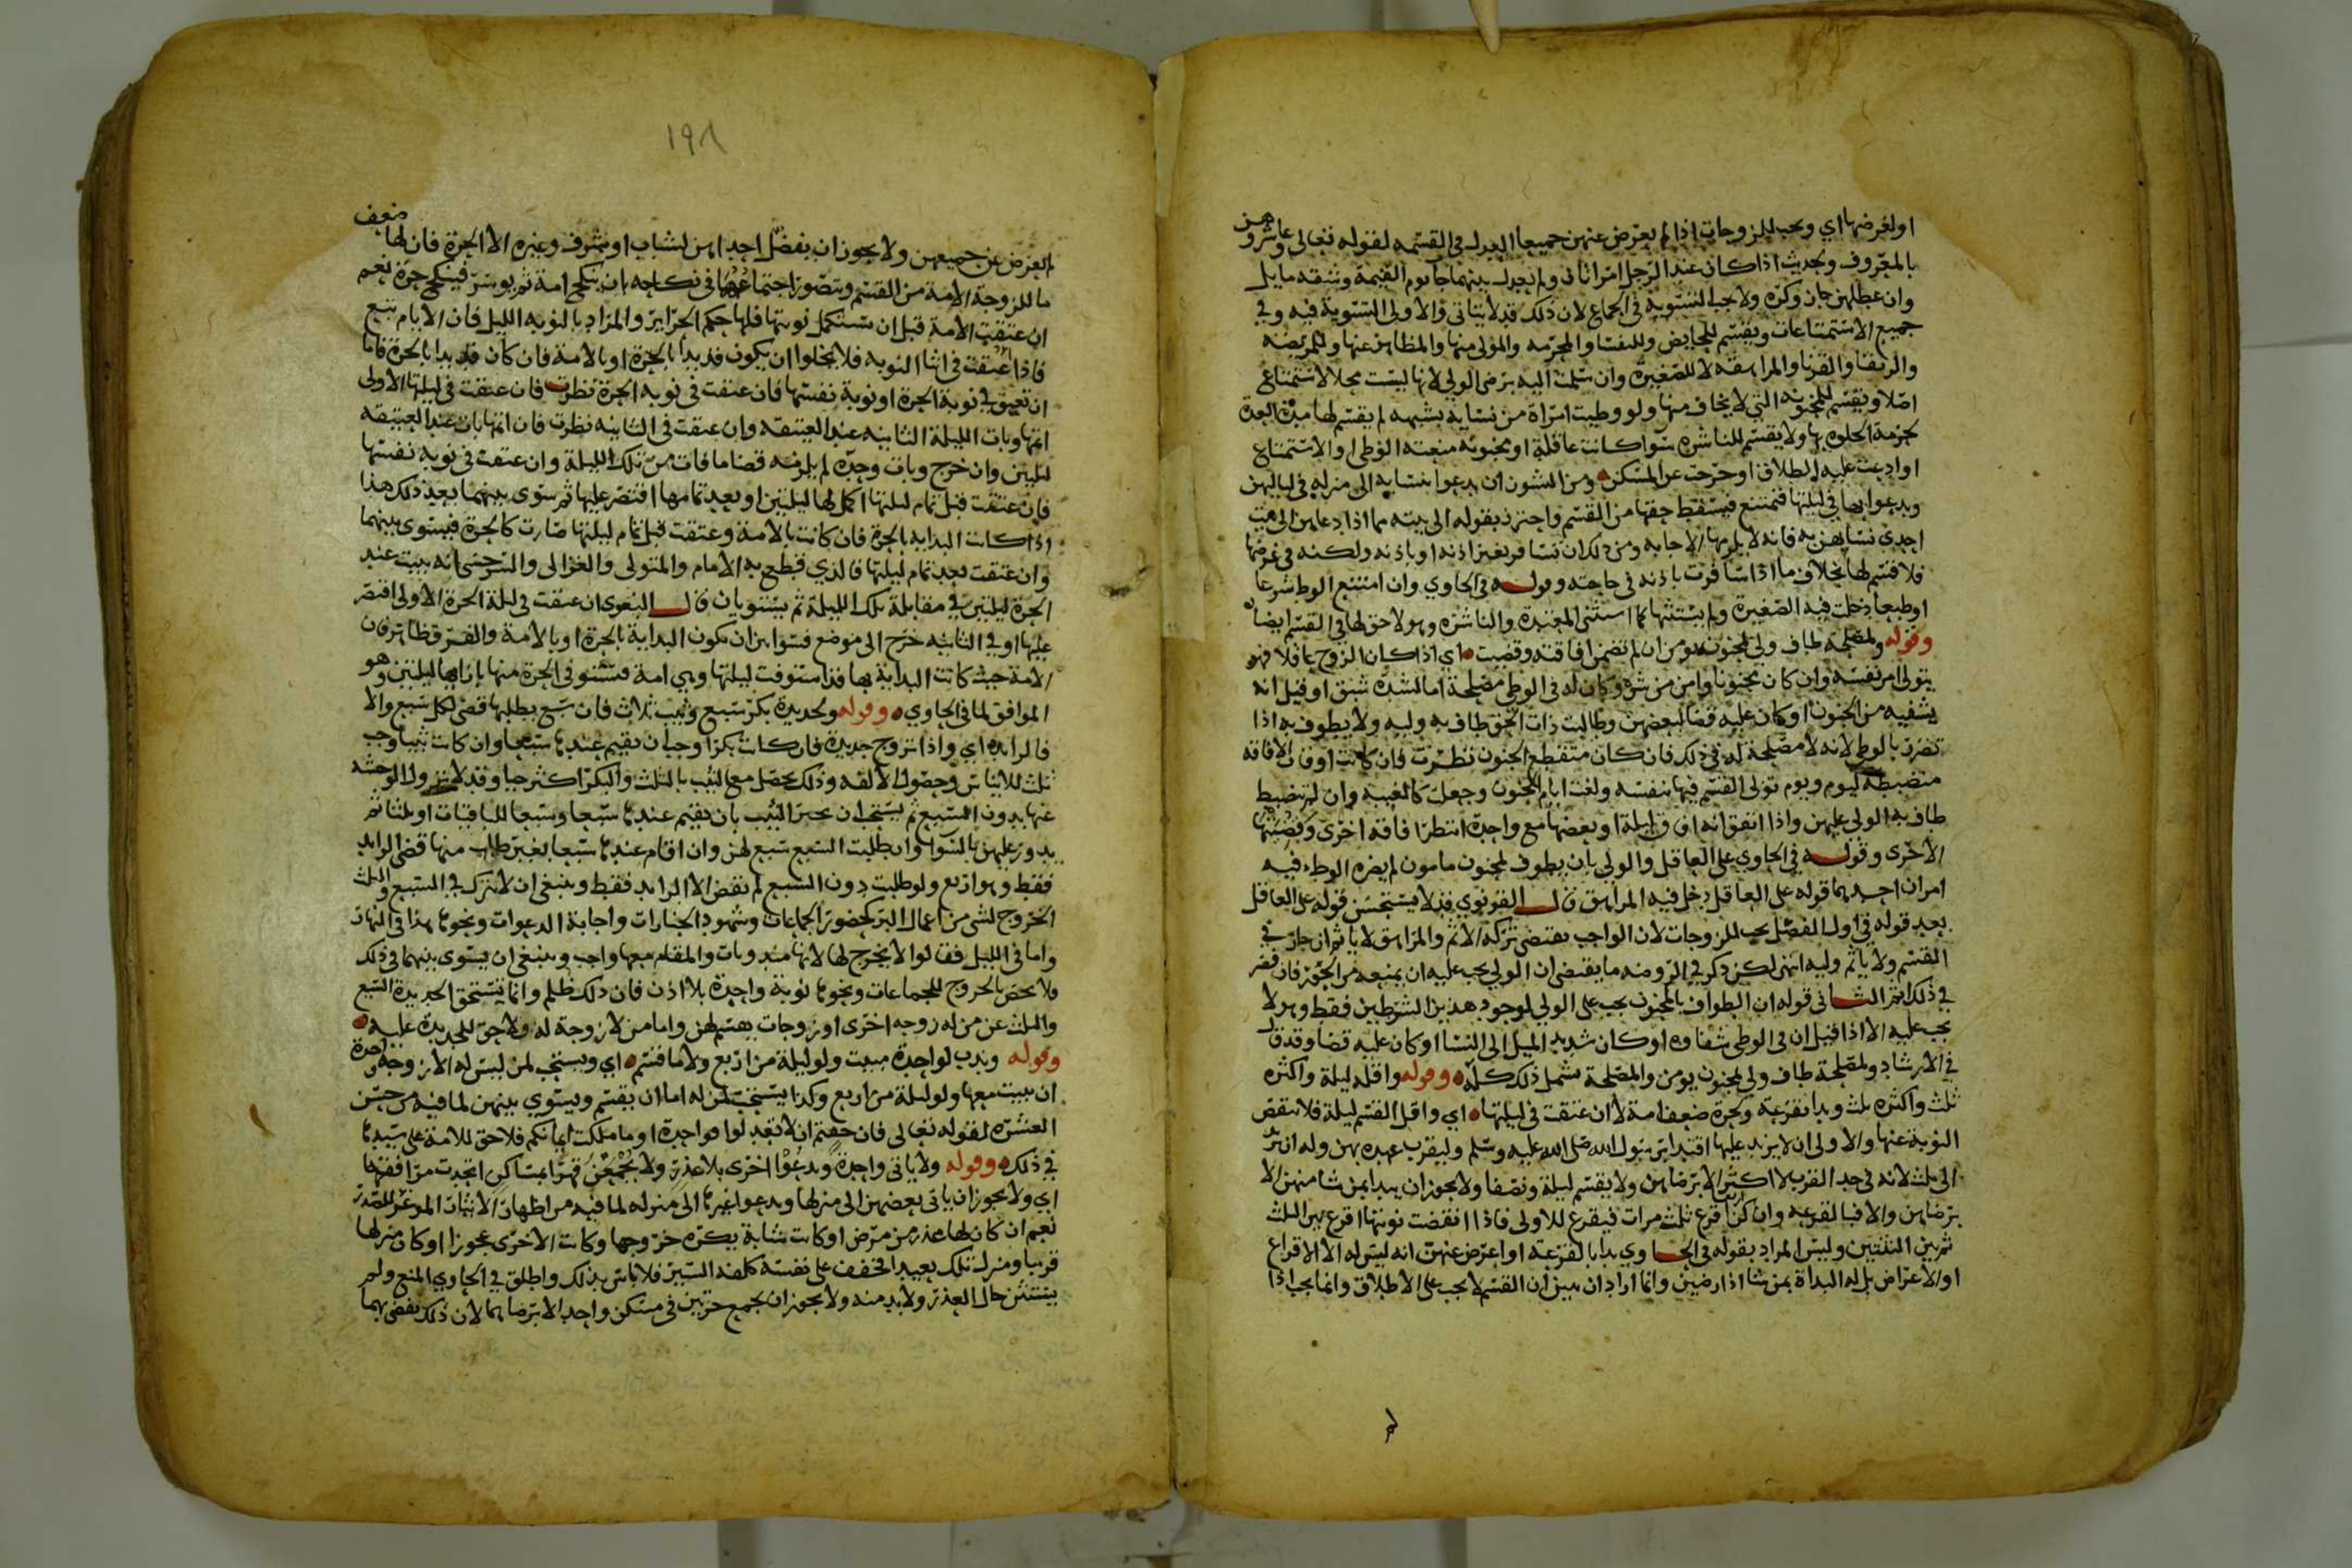 او لغرضها اي ويجب للزوجات اذا لم يعرض عنهن جميعا العدل في القسمه لقوله تعالى وعاشروهن
بالمعروف وحديث اذا كان عند الرجل امراتان ولم يعدل بينهما جا يوم القيمة وشقه مايل
وان عطلهن جاز وكره ولا يجب التسوية في الجماع لان ذلك قد لا يتاتى والاولى التسوية فيه وفي
جميع الاستمتاعات ويقسم للحايض وللنفسا والمحرمه والمولى منها والمظاهر عنها وللمريضه
والرتقا والقرنا والمراهقه لا للصغيرة وان سلمت اليه برضى الولي لانها ليست محلا لاستمتاع
اصلا ويقسم للمجنونه التي لا يخاف منها ولو وطيت امراة من نسايه بشبهه لم يقسم لها مدة العدة
لحرمة الخلوه بها ولا يقسم للناشزه سوا كانت عاقلة او مجنونه منعته الوطي او الاستمتاع
او ادعت عليه الطلاق او خرجت عن المسكن ومن النشوز ان يدعوا بنسايه الى منزله في لياليهن
ويدعوا بها في ليلتها فتمتنع فيسقط حقها من القسم واحترز بقوله الى بيته مما اذا دعاهن الى بيت
احدى نسايهن به فانه لا يلزمها الاجابه ومن ذلك ان تسافر بغير اذنه او باذنه ولكنه في غرضها
فلا قسم لها بخلاف ما اذا سافرت باذنه في حاجته وقوله في الحاوي وان امتنع الوط شرعا
او طبعا دخلت فيه الصغيرة ولم يستثنها كما استثنى المعتدة والناشزه وهو لا حق لها في القسم ايضا
وقوله ولمصلحة طاف ولي لمجنون يومن ان لم تضمن افاقته وقضيت اي اذا كان الزوج عاقلا فهو
يتولى امر نفسه وان كان مجنونا وامن من شره وكان له في الوطي مصلحة اما لشدة شبق او قيل انه
يشفيه من الجنون او كان عليه قضا لبعضهن وطالبت ذات الحق طاف به وليه ولا يطوف به اذا
تضرر بالوطي لانه لا مصلحة له في ذلك فان كان متقطع الجنون نظرت فان كانت اوقات الافاقه
منضبطه كيوم ويوم تولى القسم فيها بنفسه ولغت ايام الجنون وجعلت كالغيبه وان لم تنضبط
طاف به الولي عليهن واذا اتفق انه افاق ليلة او بعضها مع واحدة انتظرنا افاقة اخرى وقضيتها
الاخرى وقوله في الحاوي على العاقل والولي بان يطوف بمجنون مامون لم يضره الوطء فيه
امران احدهما قوله على العاقل دخل فيه المراهق قال القونوي قد لا يستحسن قوله على العاقل
بعد قوله في اول الفصل يجب للزوجات لان الواجب يقتضي تركه الاثم والمراهق لا ياثم ان جار في
القسم ولا ياثم وليه انتهى لكن ذكر في الروضه ما يقتضي ان الولي يجب عليه ان يمنعه من الجور فان قصر
في ذلك اثم الثاني قوله ان الطواف بالمجنون يجب على الولي لوجود هذين الشرطين فقط وهو لا
يجب عليه الا اذا قيل ان في الوطي شفاوه او كان شديد الميل الى النسا او كان عليه قضا وقد قال
في الارشاد ولمصلحة طاف ولي لمجنون يومن والمصلحة تشمل ذلك كله وقوله واقله ليلة واكثره
ثلث واكثره ثلث وبدا بقرعه ولحرة ضعف امة لا ان عتقت في ليلتها اي واقل القسم ليلة فلا ينقص
النوبة عنها والاولى ان لا يزيد عليها اقتدا برسول الله صلى الله عليه وسلم وليقرب عهده بهن وله ان يزيد
الى ثلث لانه في حد القرب لا اكثر الا برضاهن ولا يقسم ليلة ونصفا ولا يجوز ان يبدا بمن شا منهن الا
برضاهن والا فبالقرعه وان كن اربع اقرع ثلث مرات فيقرع للاولى فاذا انقضت نوبتها اقرع بين الثلث
ثم بين الثنتين وليس المراد بقوله في الحاوي بدا بالقرعه او اعرض عنهن انه ليس له الا الاقراع
او الاعراض بل له البداة بمن شا اذا رضين وانما اراد ان يبين ان القسم لا يجب على الاطلاق وانما يجب اذا
١٩٨
لم يعرض عن جميعهن ولا يجوز ان يفضل احداهن لشباب او شرف وغيره الا الحرة فان لها ضعف
ما للزوجة الامة من القسم ويتصور اجتماعهما في نكاحه بان ينكح امة ثم يوسر فينكح حرة نعم
ان عتقت الامة قبل ان تستكمل نوبتها فلها حكم الحراير والمراد بالنوبه الليل فان الايام تبع
فاذا عتقت في اثنا النوبه فلا يخلوا ان يكون قد بدا بالحرة او بالامة فان كان قد بدا بالحرة فاما
ان تعتق في نوبة الحرة او نوبة نفسها فان عتقت في نوبه الحرة نظرت فان عتقت في ليلتها الاولى
اتمها وبات الليلة الثانيه عند العتيقه وان عتقت في الثانيه نظرت فان اتمها بات عند العتيقه
ليلتين وان خرج وبات وحده لم يلزمه قضا ما فات من تلك الليلة وان عتقت في نوبه نفسها
فان عتقت قبل تمام ليلتها اكمل لها ليلتين او بعد تمامها اقتصر عليها ثم سوى بينهما بعد ذلك هذا
اذا كانت البدايه بالحرة فان كانت بالامة وعتقت قبل تمام ليلتها صارت كالحرة فيسوى بينهما
وان عتقت بعد تمام ليلتها فالذي قطع به الامام والمتولى والغزالى والسرخسى انه يبيت عند
الحرة ليلتين في مقابلة تلك الليلة ثم يستويان قال البغوى ان عتقت في ليلة الحرة الاولى اقتصر
عليها او في الثانيه خرج الى موضع فسوا بين ان يكون البداية بالحرة او بالامة والفرق ظاهر فان
الامة حيث كانت البداية بها قد استوفت ليلتها وهي امة فتستوفى الحرة منها بازايها ليلتين وهو
الموافق لما في الحاوي وقوله ولجديدة بكر سبع وثيب ثلاث فان سبع بطلبها قضى لكل سبع والا
فالزايد اي واذا تزوج جديدة فان كانت بكرا وجب ان يقيم عندها سبعا وان كانت ثيبا وجب
ثلث للايناس وحصول الالفه وذلك يحصل مع الثيب بالثلث والبكر اكثر حيا وقد لا تزول الوحشه
عنها بدون السبع ثم يستحب ان يخير الثيب بان يقيم عندها سبعا وسبعا للباقيات او ثلثا ثم
يدور عليهن بالسوا وان طلبت السبع سبع لهن وان اقام عندها سبعا بغير طلب منها قضى الزايد
فقط وهو اربع ولو طلبت دون السبع لم يقض الا الزايد فقط وينبغي ان لا يترك في السبع والثلث
الخروج لشي من اعمال البر كحضور الجماعات وشهود الجنازات واجابة الدعوات ونحوها هذا في النهار
واما في الليل فقالوا لا يخرج لها لانها مندوبات والمقام معها واجب وينبغي ان يسوى بينهما في ذلك
فلا يخص بالخروج للجماعات ونحوها نوبة واحدة بلا اذن فان ذلك ظلم وانما تستحق الجديدة السبع
والثلث عن من له زوجه اخرى او زوجات يقسم لهن واما من لا زوجة له ولا حق للجديدة عليه
وقوله وندب لواحدة مبيت ولو ليلة من اربع ولاما قسم اي ويستحب لمن ليس له الا زوجه واحدة
ان يبيت معها ولو ليلة من اربع وكذا يستحب لمن له اما ان يقسم ويسوي بينهن لما فيه من حسن
العشره لقوله تعالى فان خفتم ان لا تعدلوا فواحدة او ما ملكت ايمانكم فلا حق للامة على سيدها
في ذلك وقوله ولا ياتى واحدة ويدعوا اخرى بلا عذر ولا يجمعهن قهرا بمساكن اتحدت مرافقها
اي ولا يجوز ان ياتى بعضهن الى منزلها ويدعوا غيرها الى منزله لما فيه من اظهار الايثار الموغر للصدر
نعم ان كان لها عذر من مرض او كانت شابة يكره خروجها وكانت الاخرى عجوزا او كان منزلها
قريبا ومنزل تلك بعيد اتخفف على نفسه كلفه السير فلا باس بذلك واطلق في الحاوي المنع ولم
يستثن حال العذر ولا بد منه ولا يجوز ان يجمع حرتين في مسكن واحد الا برضاهما لان ذلك يفضى بهما